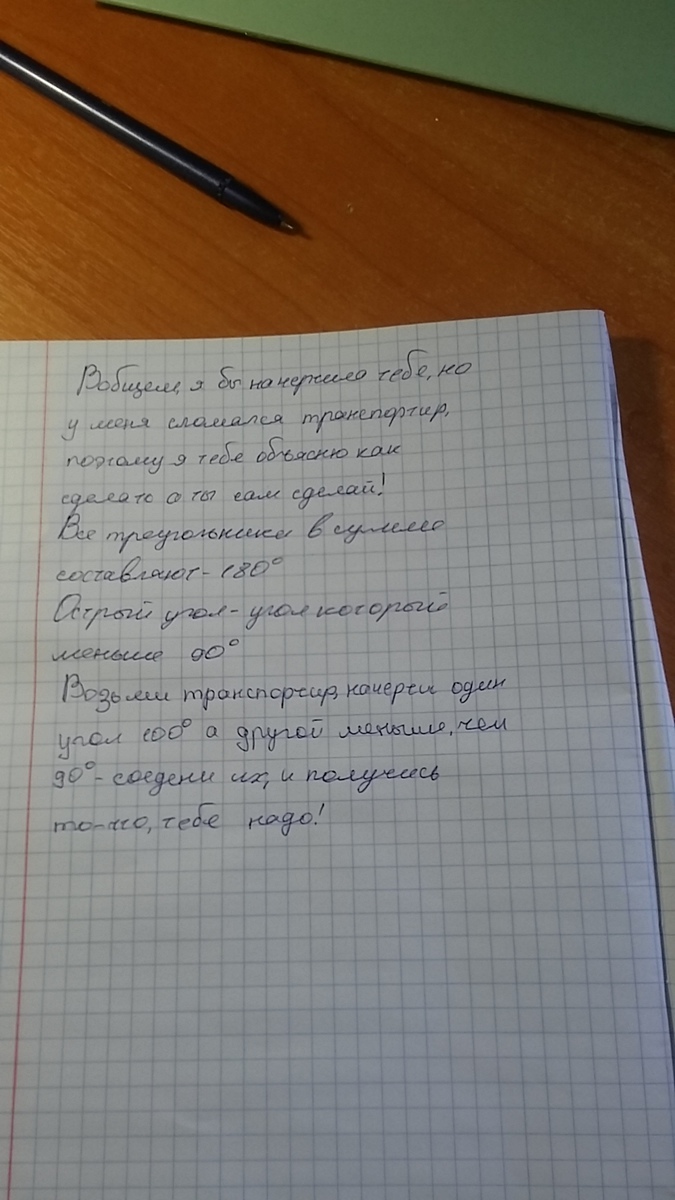 Вобщем, я бы начертила тебе, но
у меня сломался транспортир,
поэтому я тебе объясню как
сделать а ты сам сделай!
Все треугольники в сумме
составляют - 180°
Острый угол - угол который
меньше 90°
Возьми транспортир, начерти один
угол 100° а другой меньше, чем
90° - соедени их, и получишь
то-что, тебе надо!